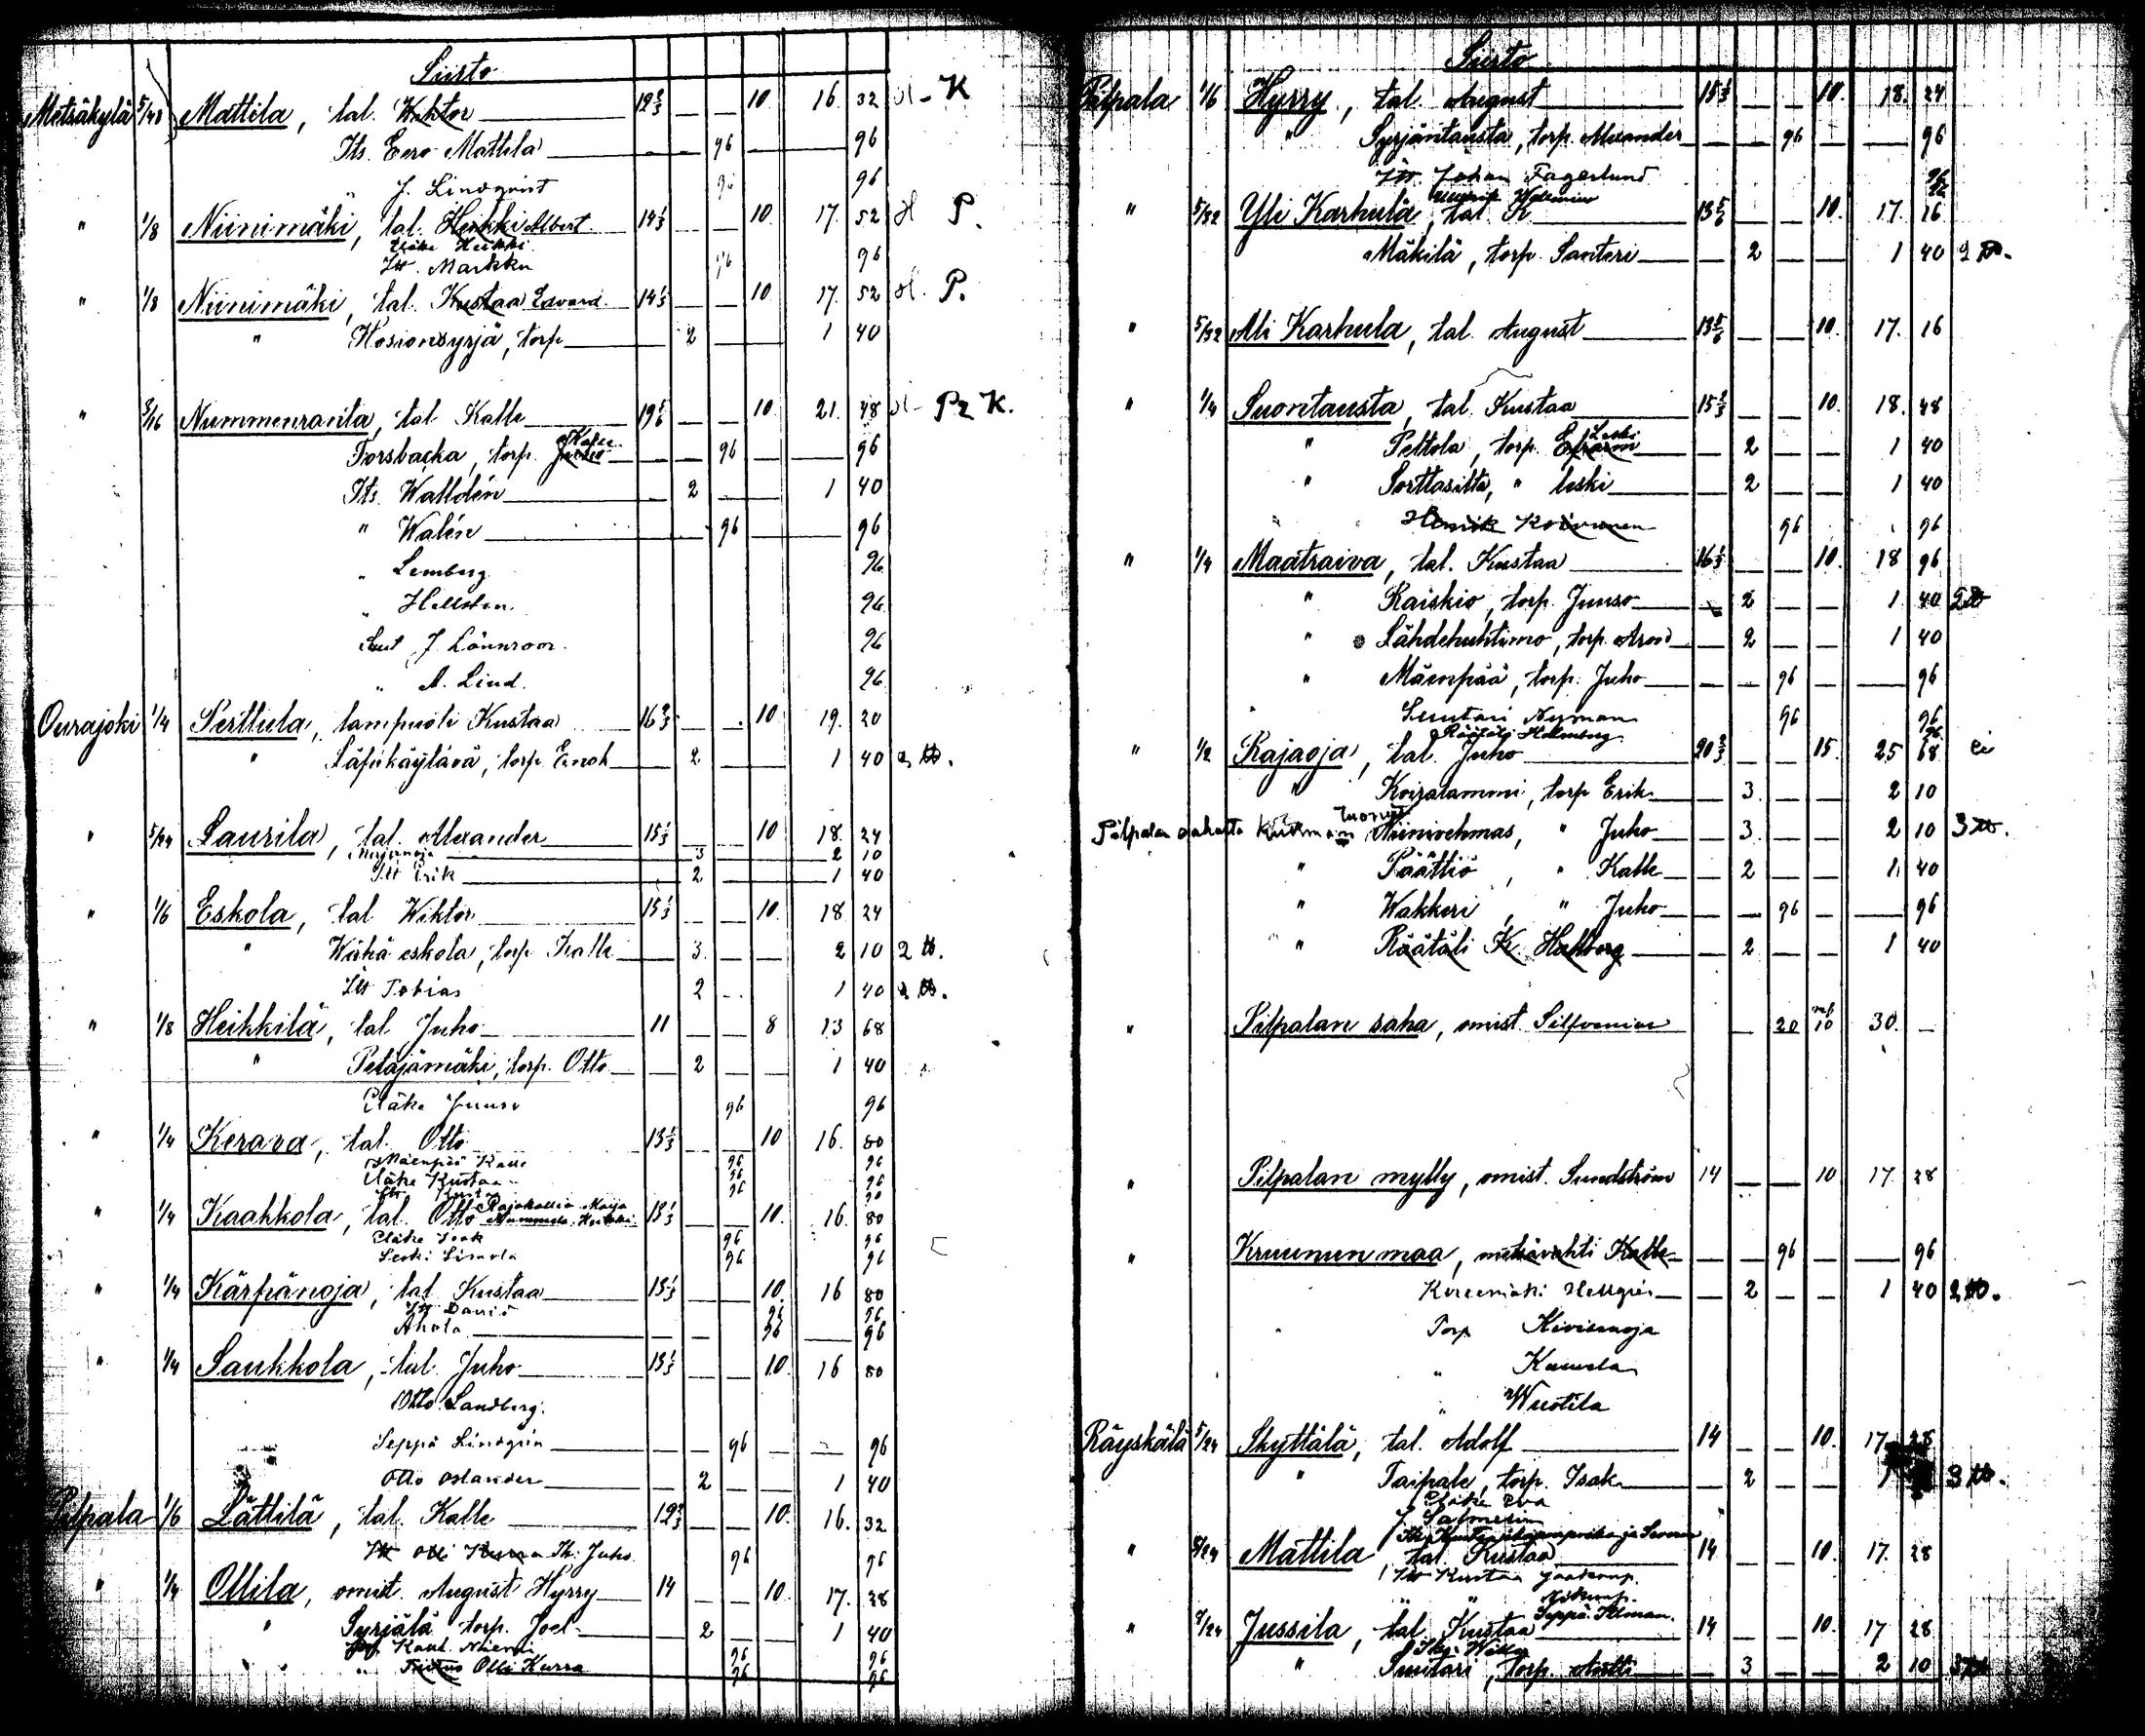 Siirto
Metsäkylä 5/48 Mattila, tal. Wihtor 12 2/3 — — 10 16. 32 K
Its. Eero Mattila — — 96 — 96
" J. Lindqvist 96 96
" 1/8 Niinimäki, tal. Heikki Albert 14 1/3 — — 10. 17. 52 P.
Eläke Heikki
Itt. Markku 96 96
" 1/8 Niinimäki, tal. Kustaa Edvard. 14 1/3 — — 10 17. 52 P.
" Hosionsyrjä, torp — 2 — 1 40
" 3/16 Nummenranta, tal Kalle 19 1/6 — — 10 21. 48 P2 K.
Forsbacka, torp. Juho Kalle — — 96 — 96
Its. Walldén — 2 — 1 40
" Walén — 96 — 96
" Lemberg 96
" Hellsten 96
J. Lönnroos. 96
" A. Lind. 96
Ourajoki 1/4 Perttula, lampuoti Kustaa 16 2/3 — — 10 19. 20
" Läpikäytävä, torp. Enok — 2 — — 1 40
" 5/24 Laurila, tal. Alexander 15 1/3 — — 10 18. 24
Myllynoja — 3 — 2 10
Itt Erik — 2 — 1 40
" 1/6 Eskola, tal Wihtor 15 1/3 — — 10. 18 24
" Wähä eskola, torp Kalle — 3. — — 2 10 2 tt.
Itt Tobias 2 — 1 40 2 tt.
" 1/8 Heikkilä, tal Juho 11 — — 8 13 68
" Petäjämäki, torp. Otto — 2 — — 1 40
Eläke Juuso 96 96
" 1/4 Kerava, tal. Otto 13 1/3 — — 10 16. 80
Mäenpää Kalle 96 96
Eläke Kustaa 96 96
Itt Kustaa 96 96
" 1/4 Kaakkola, tal. Otto Rajakallio Maija Nummela Heikki 13 1/3 — — 10. 16. 80
Eläke Isak 96 96
Leski Liisola 96 96
" 1/4 Kärpänoja, tal Kustaa 13 1/3 — — 10. 16 80
Itt David 96 96
Ahola — — 96 — 96
" 1/4 Saukkola, tal. Juho 13 1/3 — — 10. 16 80
Otto Sandberg.
Seppä Lindgrén — 96 — — 96
Otto Oslander — 2 — — 1 40
Pilpala 1/6 Lättilä, tal. Kalle 12 2/3 — — 10. 16. 32
Itt Olli Kurra Th. Juho. 96 96
" 1/4 Ollila, omist. August Hyrry 14 — — 10. 17. 28
" Syrjälä torp. Joel — 2 — 1 40
Kaul. Niemi 96 96
" Olli Kurra 96 96
Siirto
Pilpala 1/6 Hyrry, tal. August 15 1/3 — — 10. 18. 24
" Syrjäntausta, torp. Alexander — — 96 — — 96
Itt. Johan Fagerlund 96
" 5/32 Yli Karhula, tal. K 13 5/6 — — 10. 17. 16
Mäkilä, torp. Santeri — 2 — — 1 40 2 tt.
" 5/32 Ali Karhula, tal. August 13 5/6 — — 10. 17. 16
" 1/4 Suontausta, tal. Kustaa 15 2/3 — — 10. 18. 48
" Peltola, torp. Efraim Leski — 2 — — 1 40
" Sorttasilta, " leski — 2 — — 1 40
Henrik Koivunen 96 96
" 1/4 Maatraiva, tal. Kustaa 16 1/3 — — 10. 18 96
" Raiskio, torp. Juuso — 2 — — 1 40 2 tt
" Lähdehuhtimo, torp. Arvid — 2 — — 1 40
" Mäenpää, torp. Juho — — 96 — — 96
Suutari Nyman 96 96
Räätäli Holmberg. 96
" 1/2 Rajaoja, tal. Juho 20 2/3 — — 15. 25 68 ei
" Koiralammi, torp Erik — 3. — — 2 10
Pilpalan sahasta Niinivehmas, " Juho — 3. — — 2 10 3 tt.
" Päättiö, " Kalle — 2 — — 1 40
" Wakkeri, " Juho — — 96 — — 96
" Räätäli K. Hallberg — 2 — — 1 40
" Pilpalan saha, omist. Silfvenius — 20 10 30. —
" Pilpalan mylly, omist. Sundström 14 — — 10 17. 28
" Kruunun maa, metsävahti Kalle — — 96 — — 96
Hellgrén — 2 — — 1 40 2 tt.
" Torp Kivisenoja
" Kaunela
" Wuotila
Räyskälä 5/24 Skyttälä, tal. Adolf 14 — — 10. 17. 28
" Taipale, torp. Isak — 2 — — 1 3 tt.
Eläke Eva
J. Salmelin
" 5/24 Mattila, tal. Kustaa 14 — — 10. 17. 28
Itt Kustaa Jaakonp.
" 5/24 Jussila, tal. Kustaa Seppä Ilman. 14 — — 10. 17 28
" Suutari, torp. Antti — 3 — — 2 10 3 tt